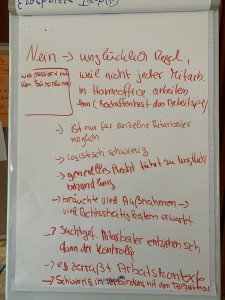 Nein → unglücklich Regel,
weil nicht jeder Mitarb.
was passiert mit
den Büroräumen
in Homeoffice arbeiten
kann (Beschaffenheit des Arbeitspl.)
→ ist nur für einzelne Mitarbeiter
möglich
→ Logistisch schwierig
→ generelles Recht führt zu Ungleich
behandlung
→ bräuchte viele Ausnahmen →
viel Rechtsstreitigkeiten erwartet
→ Suchtgef. Mitarbeiter entziehen sich
dann der Kontrolle
→ es zerreißt Arbeitskontexte
→ Schwierig in Verbindung mit dem